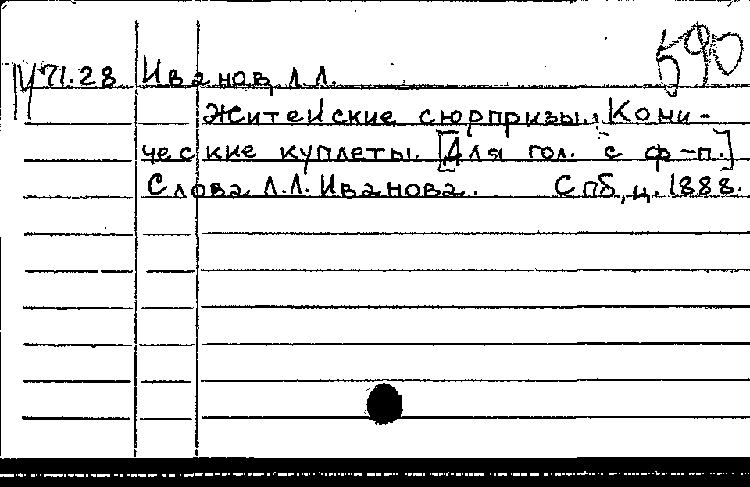 590
71.28 Иванов, Л.Л.
Житейские сюрпризы. Коми-
ческие куплеты. [Для гол. с ф-п.]
Слова Л.Л. Иванова. Спб, ц. 1888.